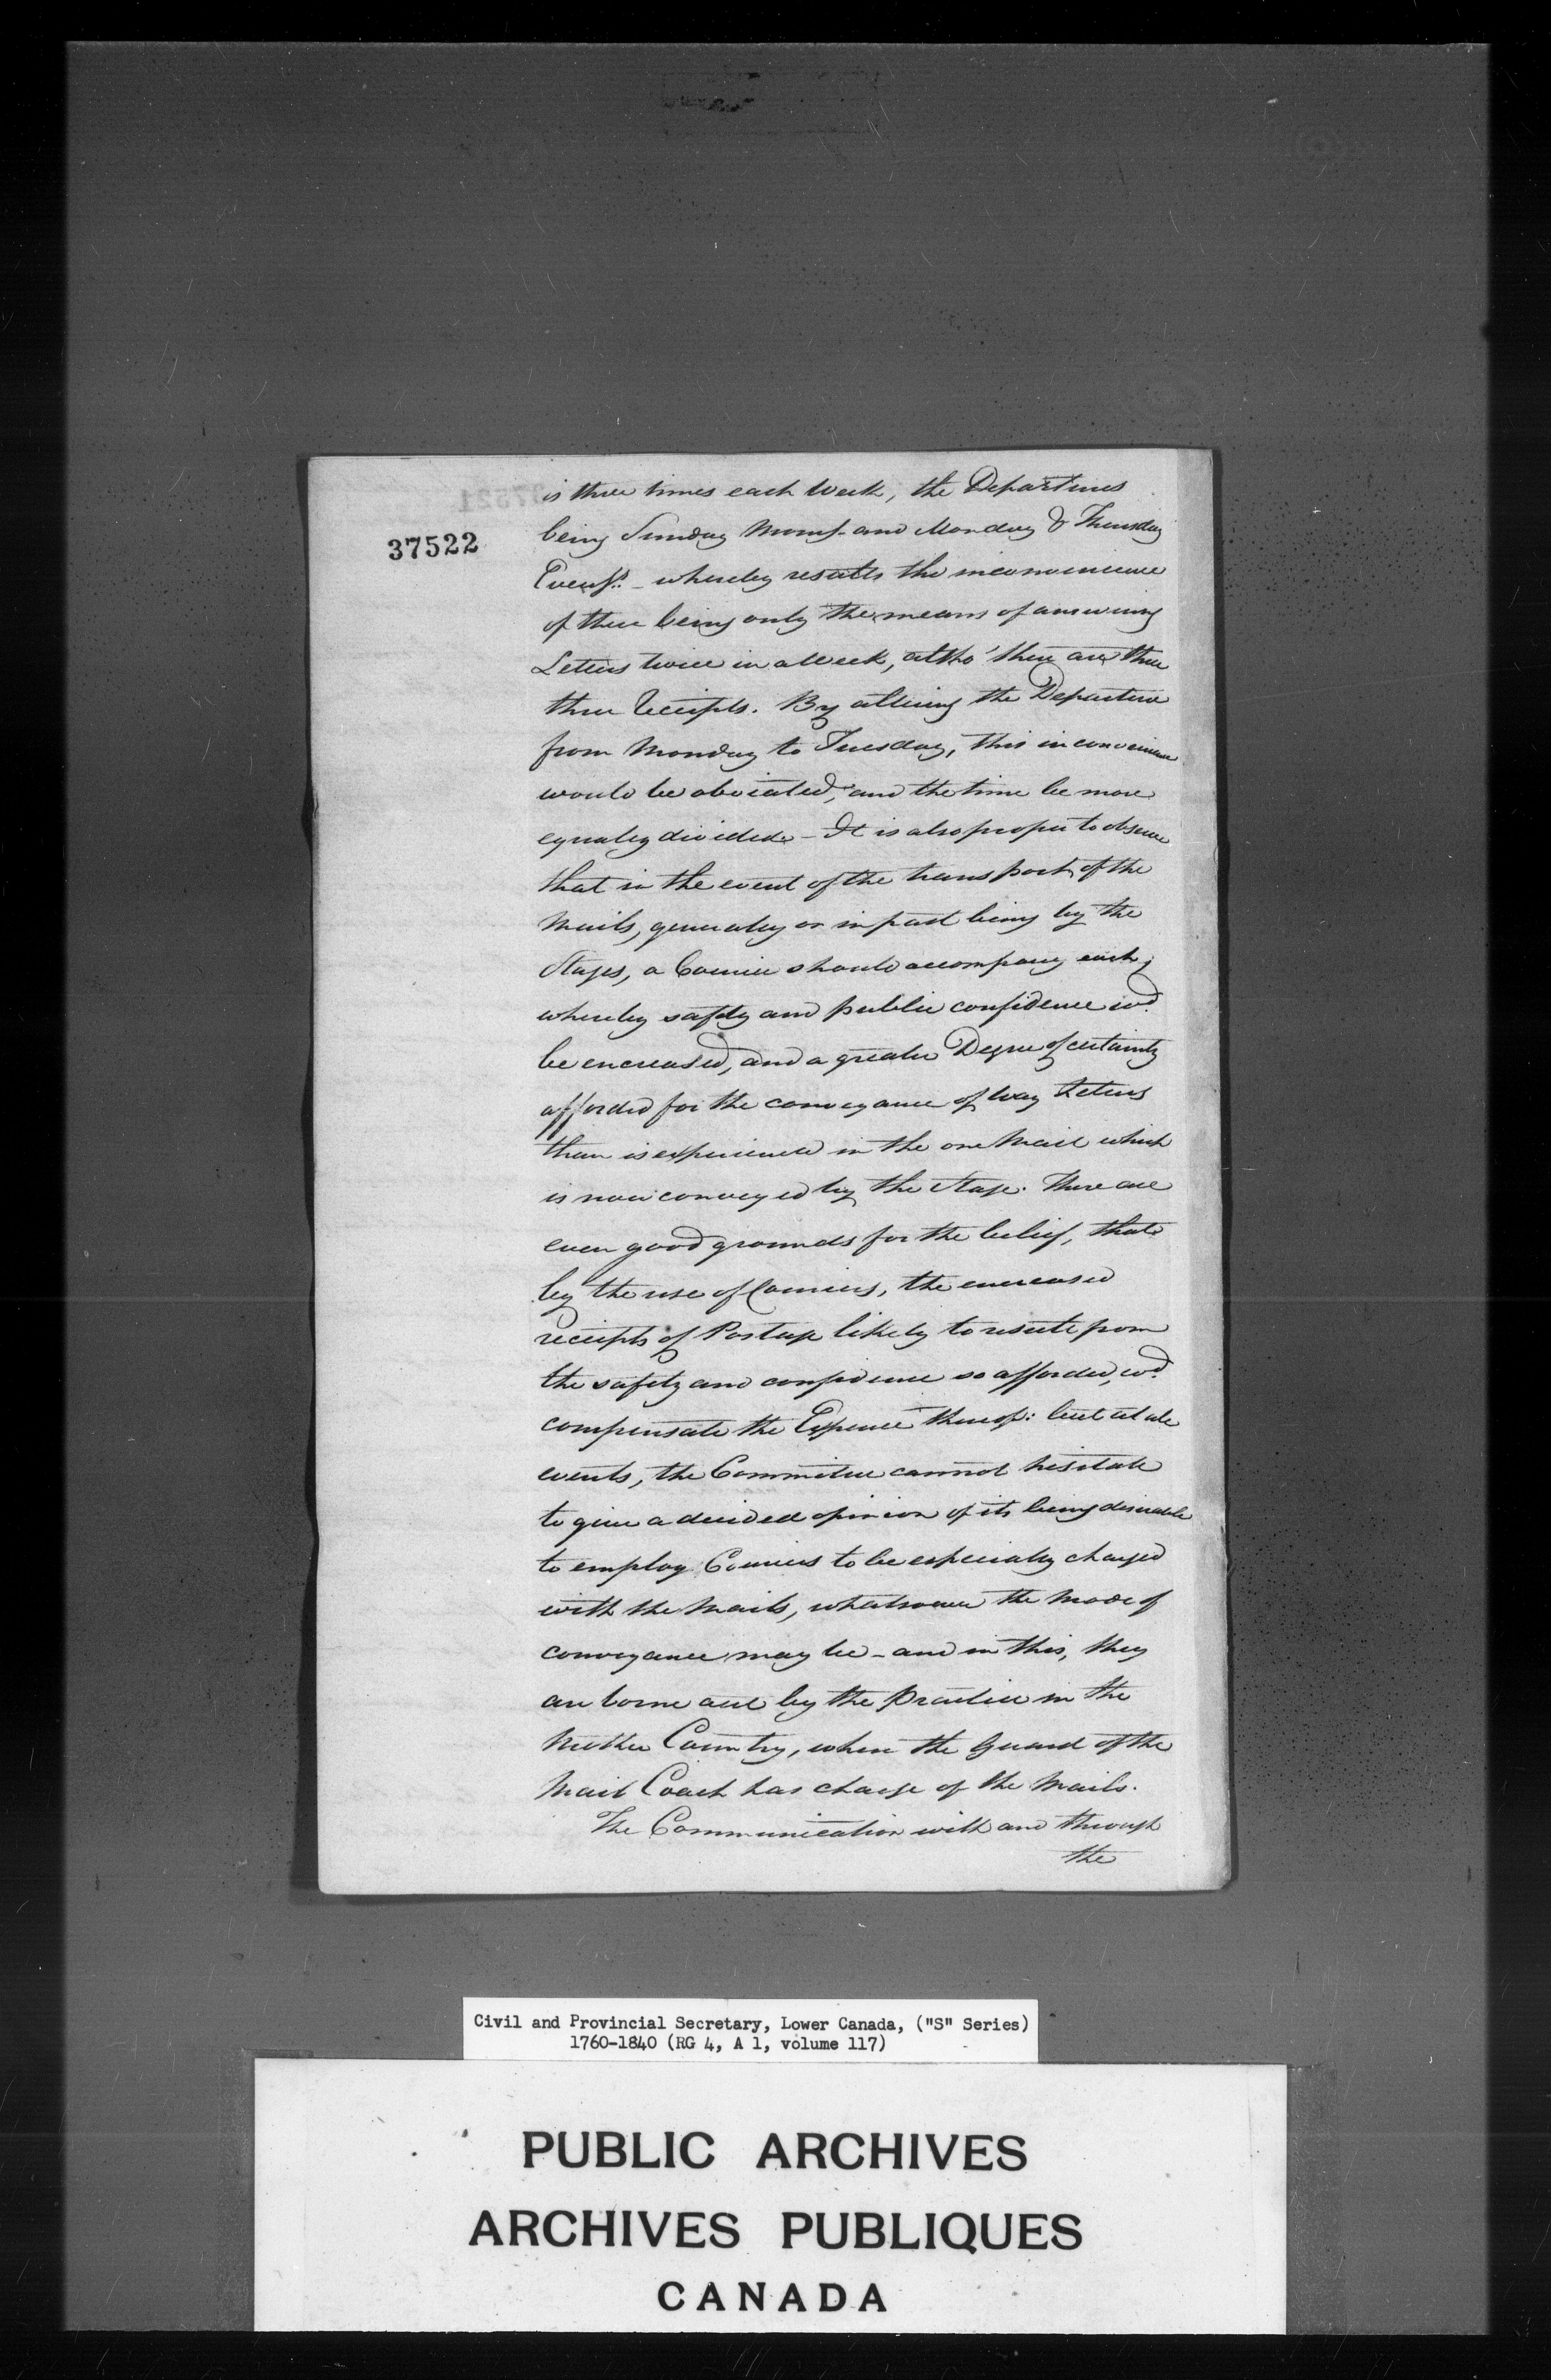 37522
is three times each Week, the Departures
being Sunday Morng. and Monday & Thursday
Evengs. – whereby results the inconvenience
of there being only the means of answering
Letters twice in a Week, altho' there are three
three receipts. By altering the Departure
from Monday to Tuesday, this inconvenience
would be obviated, and the time be more
equally divided – It is also proper to observe
that in the event of the transport of the
Mails, generally or in part being by the
Stages, a Courier should accompany each;
whereby safety and public confidence wd.
be encreased, and a greater Degree of certainty
afforded for the conveyance of Way Letters
than is experienced in the one Mail which
is now conveyed by the Stage. There are
even good grounds for the belief, that
by the use of Couriers, the encreased
receipts of Postage likely to result from
the safety and confidence so afforded, wd.
compensate the Expence thereof: but at all
events, the Committee cannot hesitate
to give a decided opinion of its being desirable
to employ Couriers to be especially charged
with the Mails, whatsoever the mode of
conveyance may be – and in this, they
are borne out by the Practice in the
Mother Country, where the Guard of the
Mail Coach has charge of the Mails.
The Communication with and through
the
Civil and Provincial Secretary, Lower Canada, ("S" Series)
1760-1840 (RG 4, A 1, volume 117)
PUBLIC ARCHIVES
ARCHIVES PUBLIQUES
CANADA